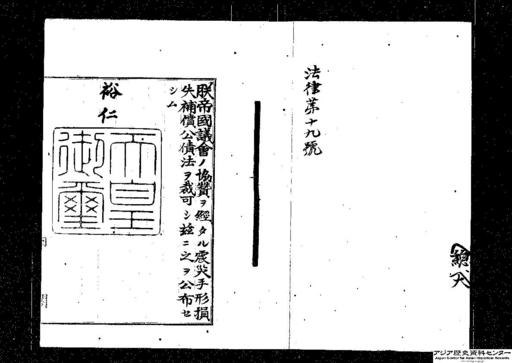 法律第十九號
朕帝國議會ノ協贊ヲ經タル震災手形損
失補償公債法ヲ裁可シ玆ニ之ヲ公布セ
シム
裕仁
天皇御璽
アジア歴史資料センター
Japan Center for Asian Historical Records